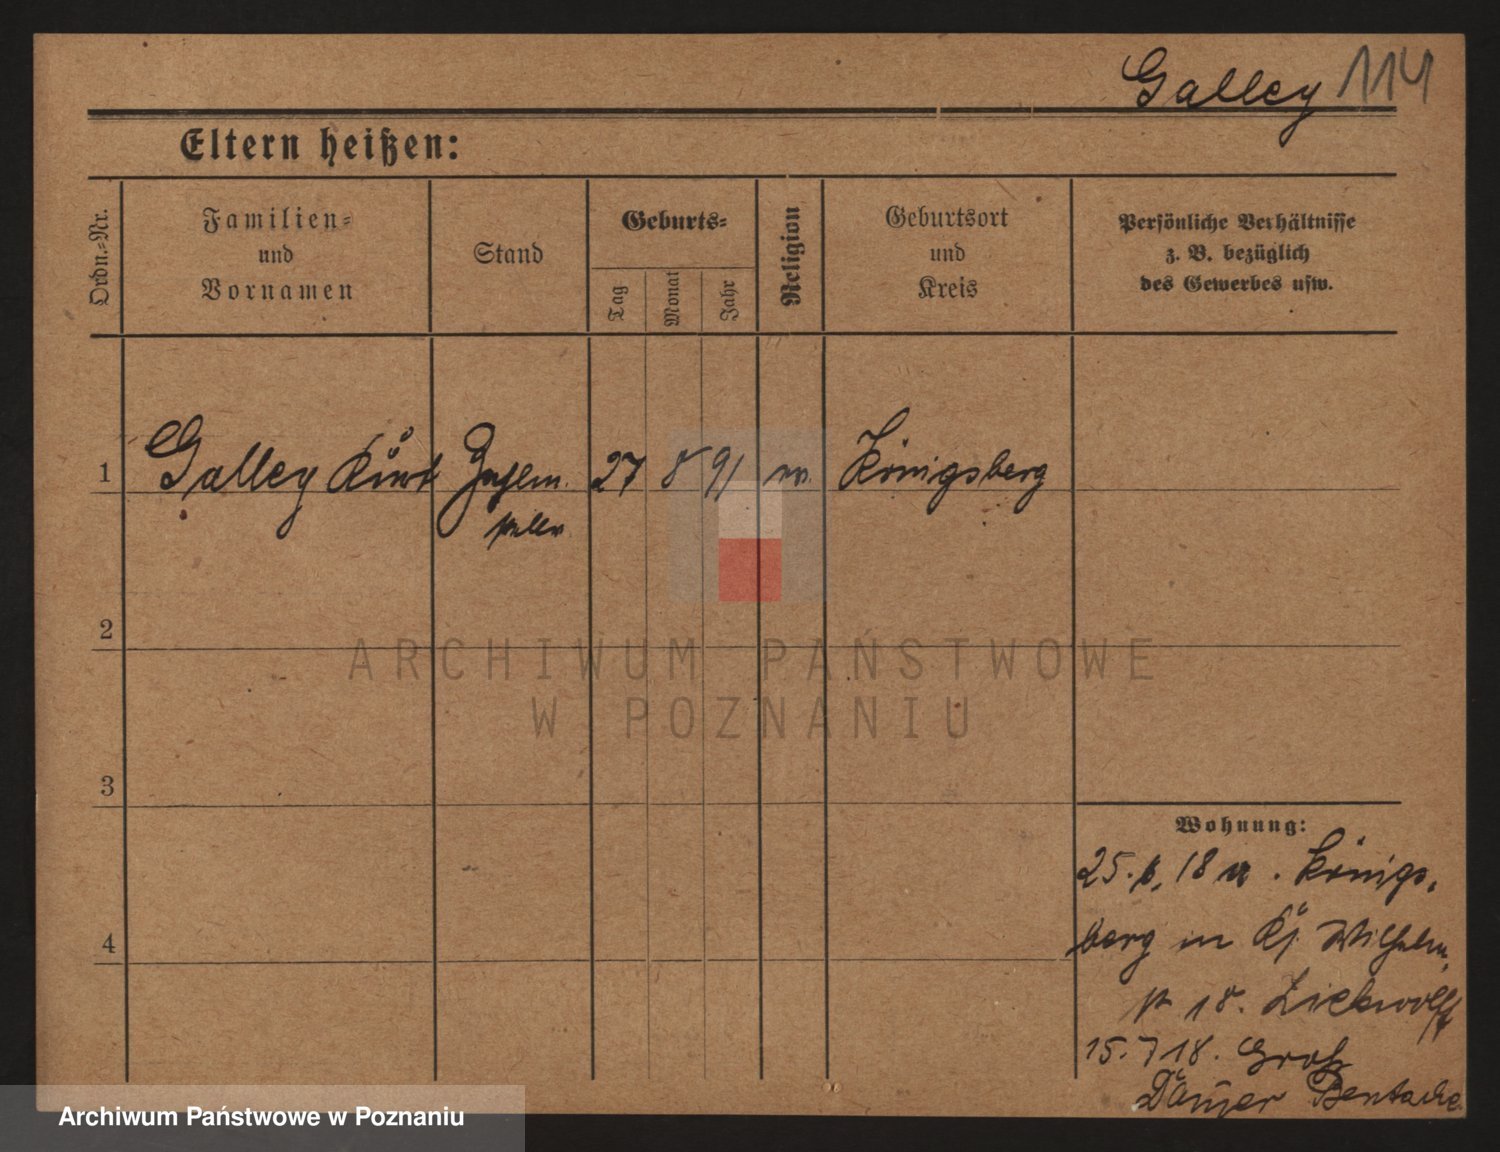 Galley 114
Eltern heißen:
Ordn.-Nr.
Familien-
und
Vornamen
Stand
Geburts-
Tag
Monat
Jahr
Religion
Geburtsort
und
Kreis
Persönliche Verhältnisse
z. B. bezüglich
des Gewerbes usw.
1 Galley Kurt 27 8 91 Königsberg
2
3
4
Wohnung:
25. 6. 18 Königs-
berg in Wilhelm
18.
15. 7 18. Groß
ARCHIWUM PAŃSTWOWE
W POZNANIU
Archiwum Państwowe w Poznaniu